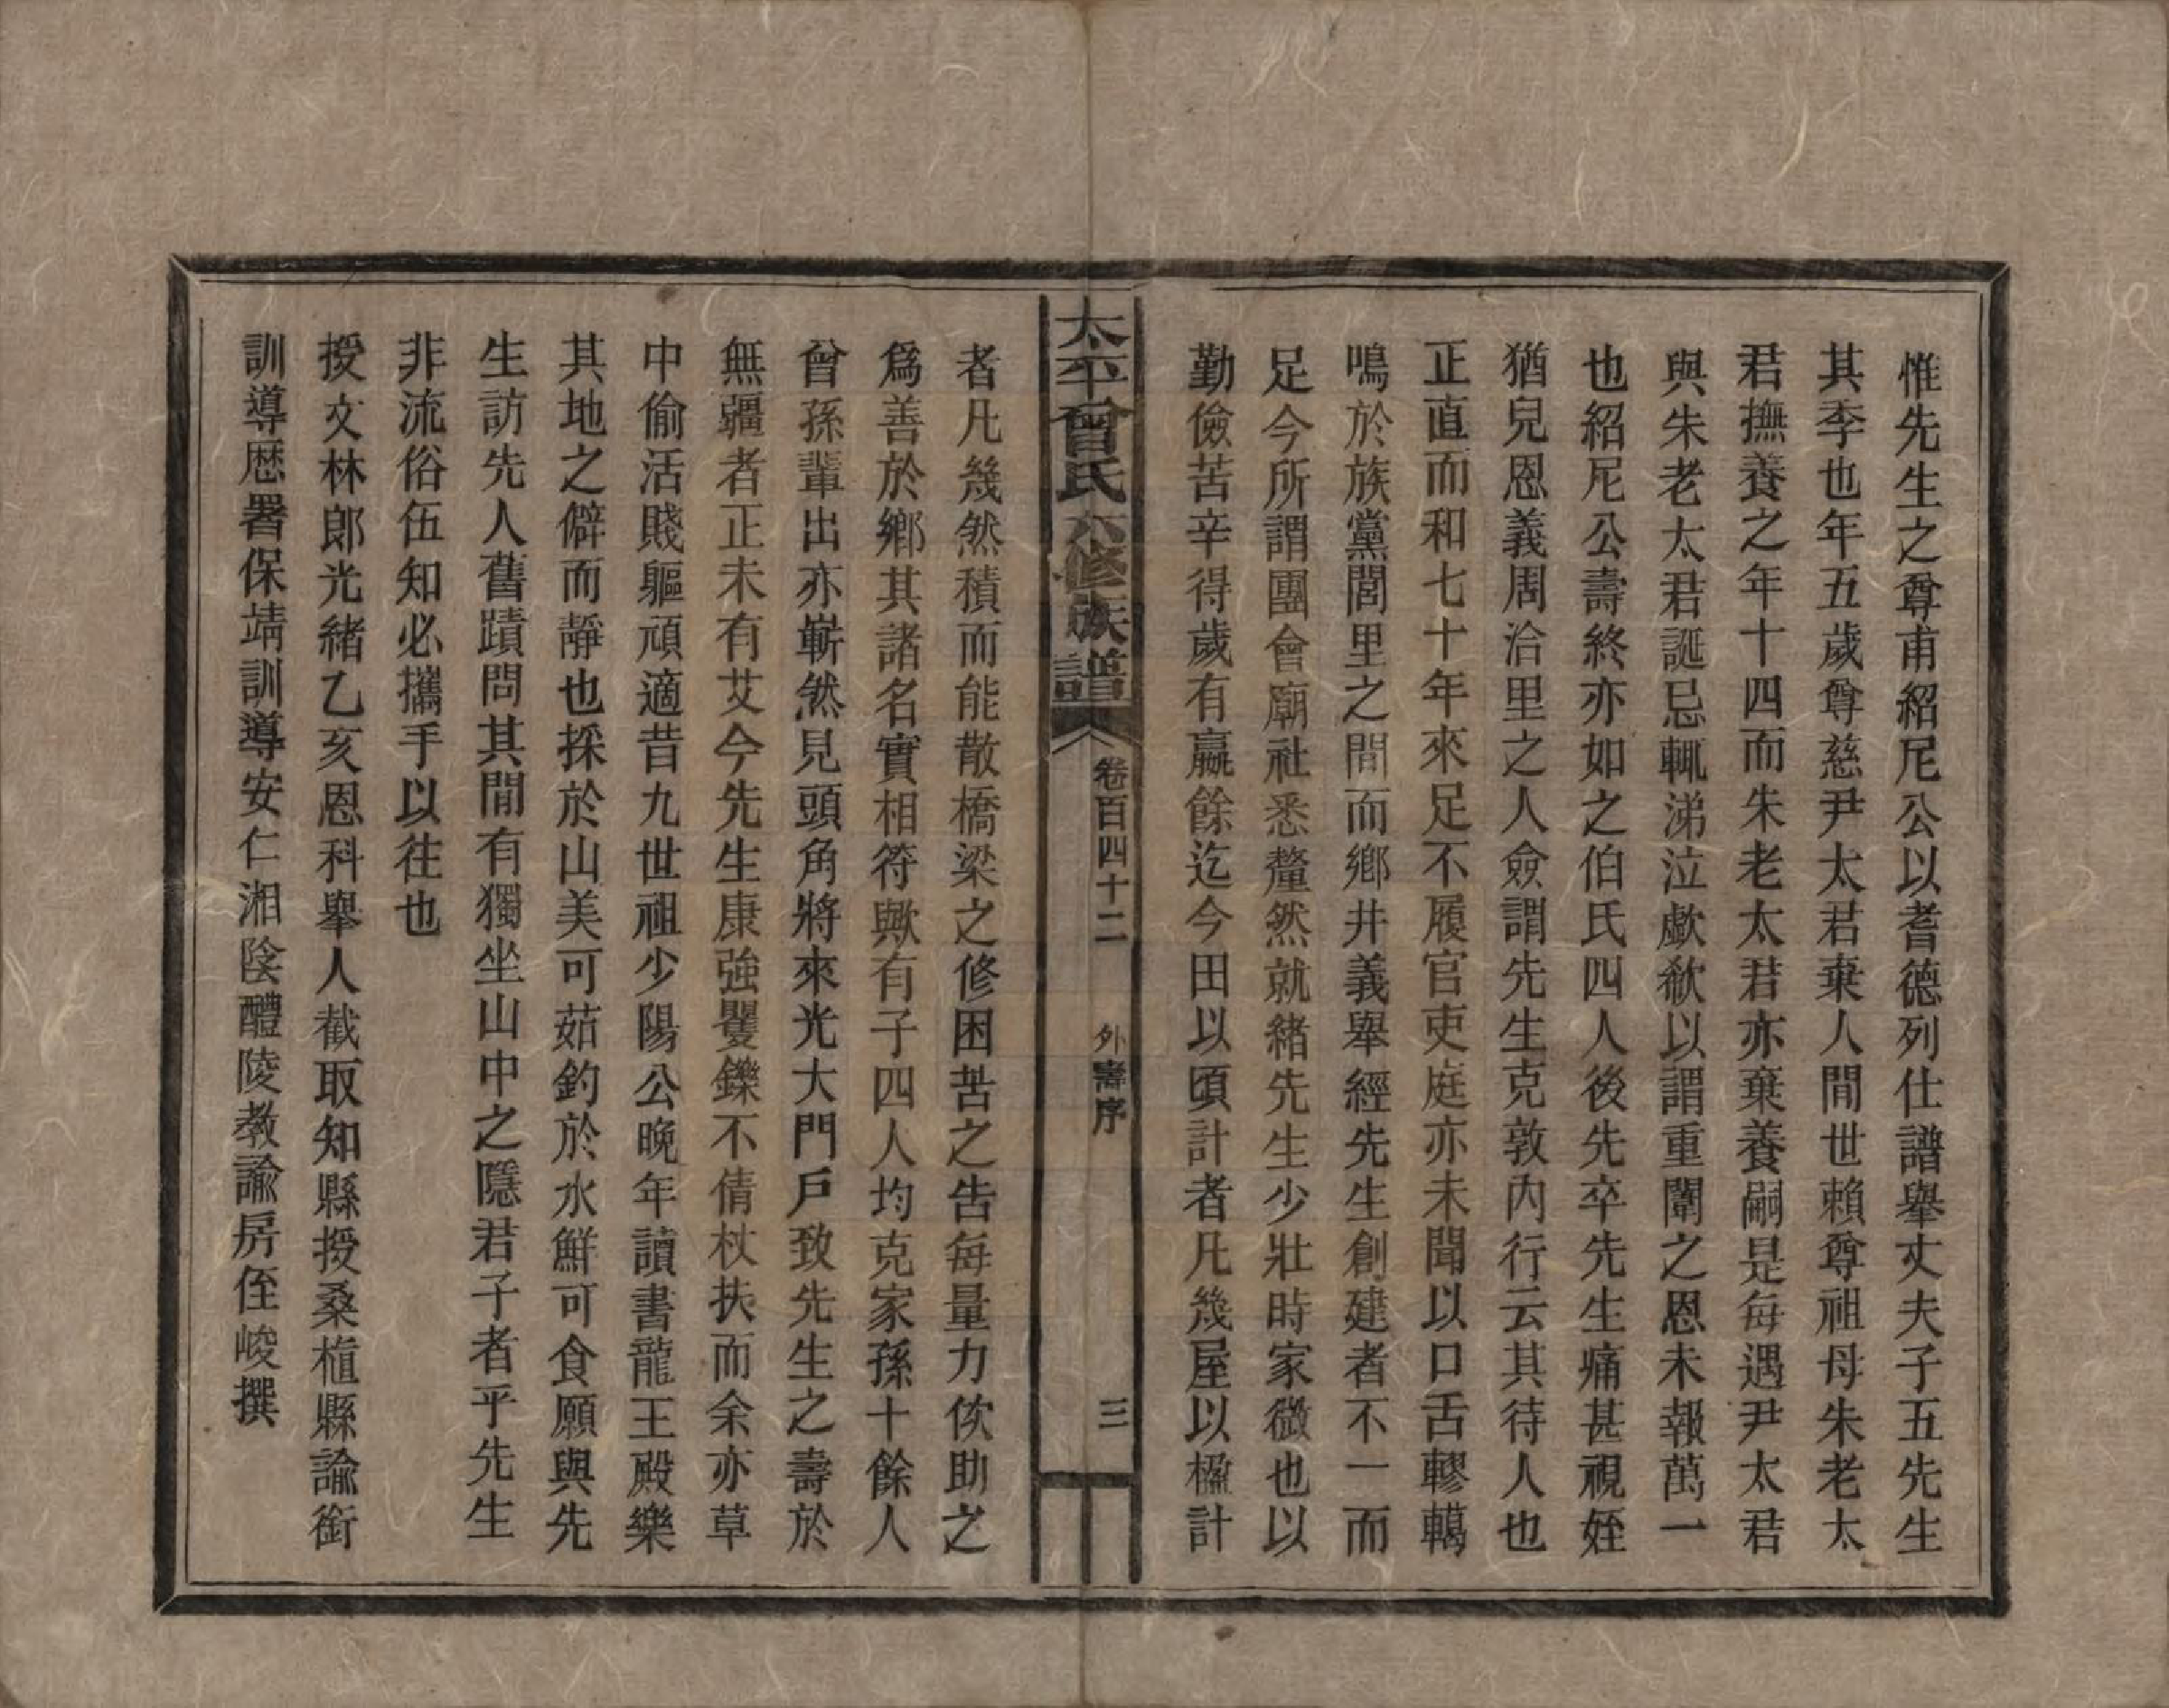 惟先生之尊甫紹尼公以耆德列仕譜舉丈夫子五先生
其季也年五歲尊慈尹太君棄人間世賴尊祖母朱老太
君撫養之年十四而朱老太君亦棄養嗣是每遇尹太君
與朱老太君誕忌輒涕泣歔欷以謂重闈之恩未報萬一
也紹尼公壽終亦如之伯氏四人後先卒先生痛甚視姪
猶兒恩義周洽里之人僉謂先生克敦內行云其待人也
正直而和七十年來足不履官吏庭亦未聞以口舌轇轕
鳴於族黨閭里之間而鄉井義舉經先生創建者不一而
足今所謂團會廟社悉釐然就緒先生少壯時家微也以
勤儉苦辛得歲有贏餘迄今田以頃計者凡幾屋以楹計
太平曾氏六修族譜 卷百四十二 外壽序 三
者凡幾然積而能散橋梁之修困苦之告每量力佽助之
爲善於鄉其諸名實相符歟有子四人均克家孫十餘人
曾孫輩出亦嶄然見頭角將來光大門戶致先生之壽於
無疆者正未有艾今先生康強矍鑠不倩杖扶而余亦草
中偷活賤軀頑適昔九世祖少陽公晚年讀書龍王殿樂
其地之僻而靜也採於山美可茹釣於水鮮可食願與先
生訪先人舊蹟問其閒有獨坐山中之隱君子者乎先生
非流俗伍知必攜手以往也
授文林郎光緒乙亥恩科舉人截取知縣授桑植縣諭銜
訓導歷署保靖訓導安仁湘陰醴陵教諭房侄峻撰